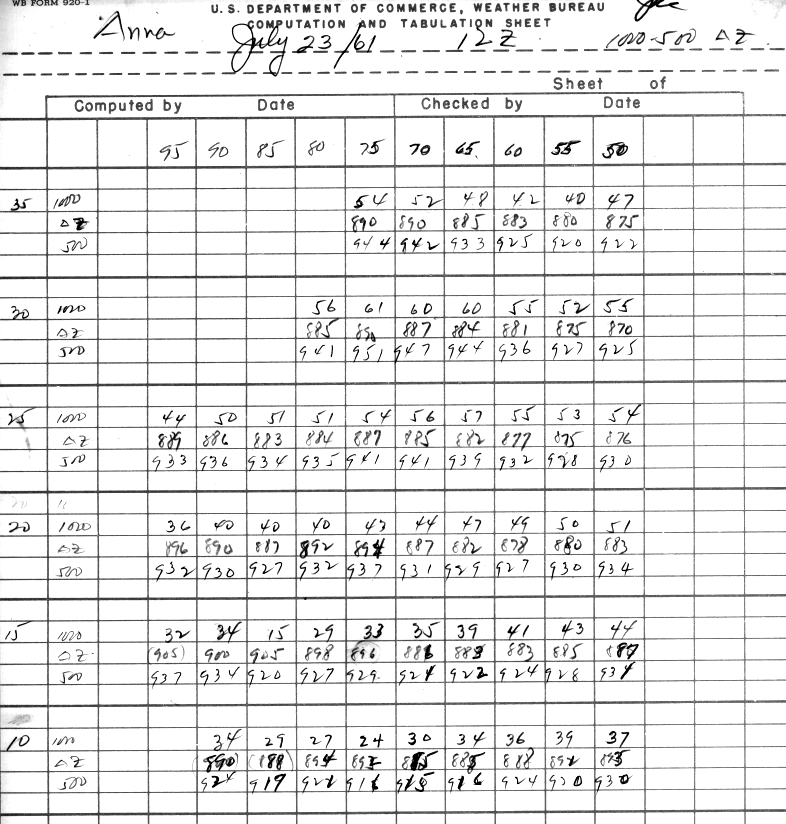 WB FORM 920-1
U. S. DEPARTMENT OF COMMERCE, WEATHER BUREAU
COMPUTATION AND TABULATION SHEET
Anna July 23/61 12Z 1000-500 ΔZ
Sheet of
Computed by Date Checked by Date
95 90 85 80 75 70 65 60 55 50
35 1000 54 52 48 42 40 47
ΔZ 890 890 885 883 880 875
500 944 942 933 925 920 922
30 1000 56 61 60 60 55 52 55
ΔZ 885 890 887 884 881 875 870
500 941 951 947 944 936 927 925
25 1000 44 50 51 51 54 56 57 55 53 54
ΔZ 889 886 883 884 887 885 882 877 875 876
500 933 936 934 935 941 941 939 932 928 930
20 1000 36 40 40 40 43 44 47 49 50 51
ΔZ 896 890 887 892 894 887 882 878 880 883
500 932 930 927 932 937 931 929 927 930 934
15 1000 32 34 15 29 33 35 39 41 43 44
ΔZ (905) 900 905 898 896 883 883 885
500 937 934 920 927 929 922 924 928
10 1000 34 29 27 24 30 34 36 39 37
ΔZ (890) (188) 894 885 885 888 891
500 924 917 921 916 915 916 924 930 930